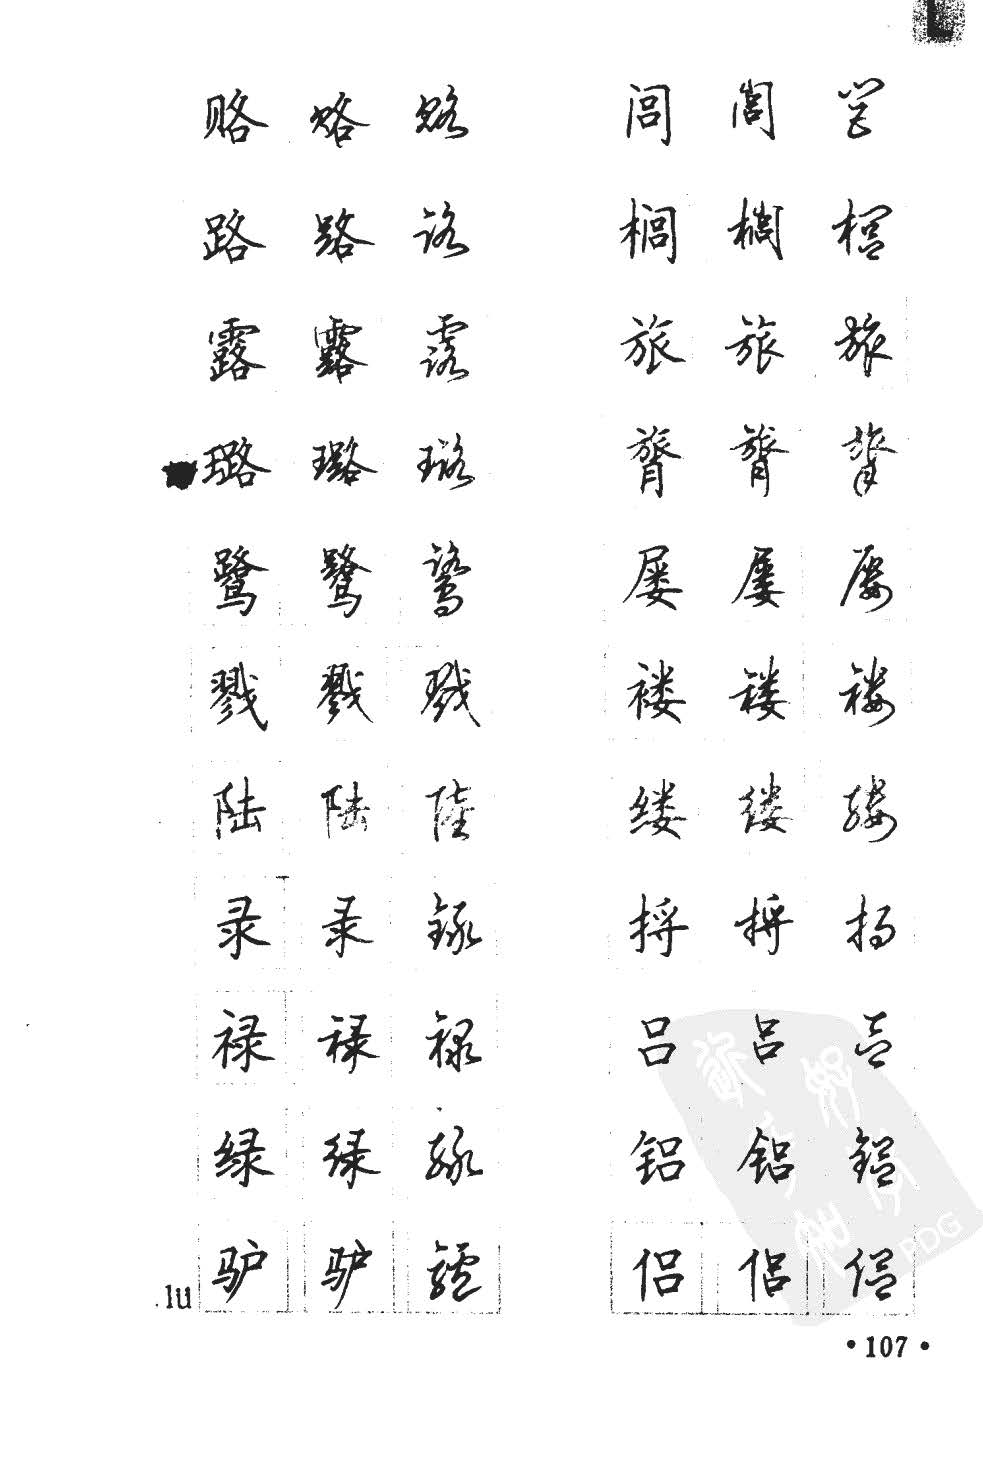 赂 赂 赂 闾 闾 闾
路 路 路 榈 榈 榈
露 露 露 旅 旅 旅
璐 璐 璐 膂 膂 膂
鹭 鹭 鹭 屡 屡 屡
戮 戮 戮 褛 褛 褛
陆 陆 陸 缕 缕 缕
录 录 録 捋 捋 捋
禄 禄 禄 吕 吕 吕
绿 绿 绿 铝 铝 铝
lu 驴 驴 驢 侣 侣 侣
·107·
PDG